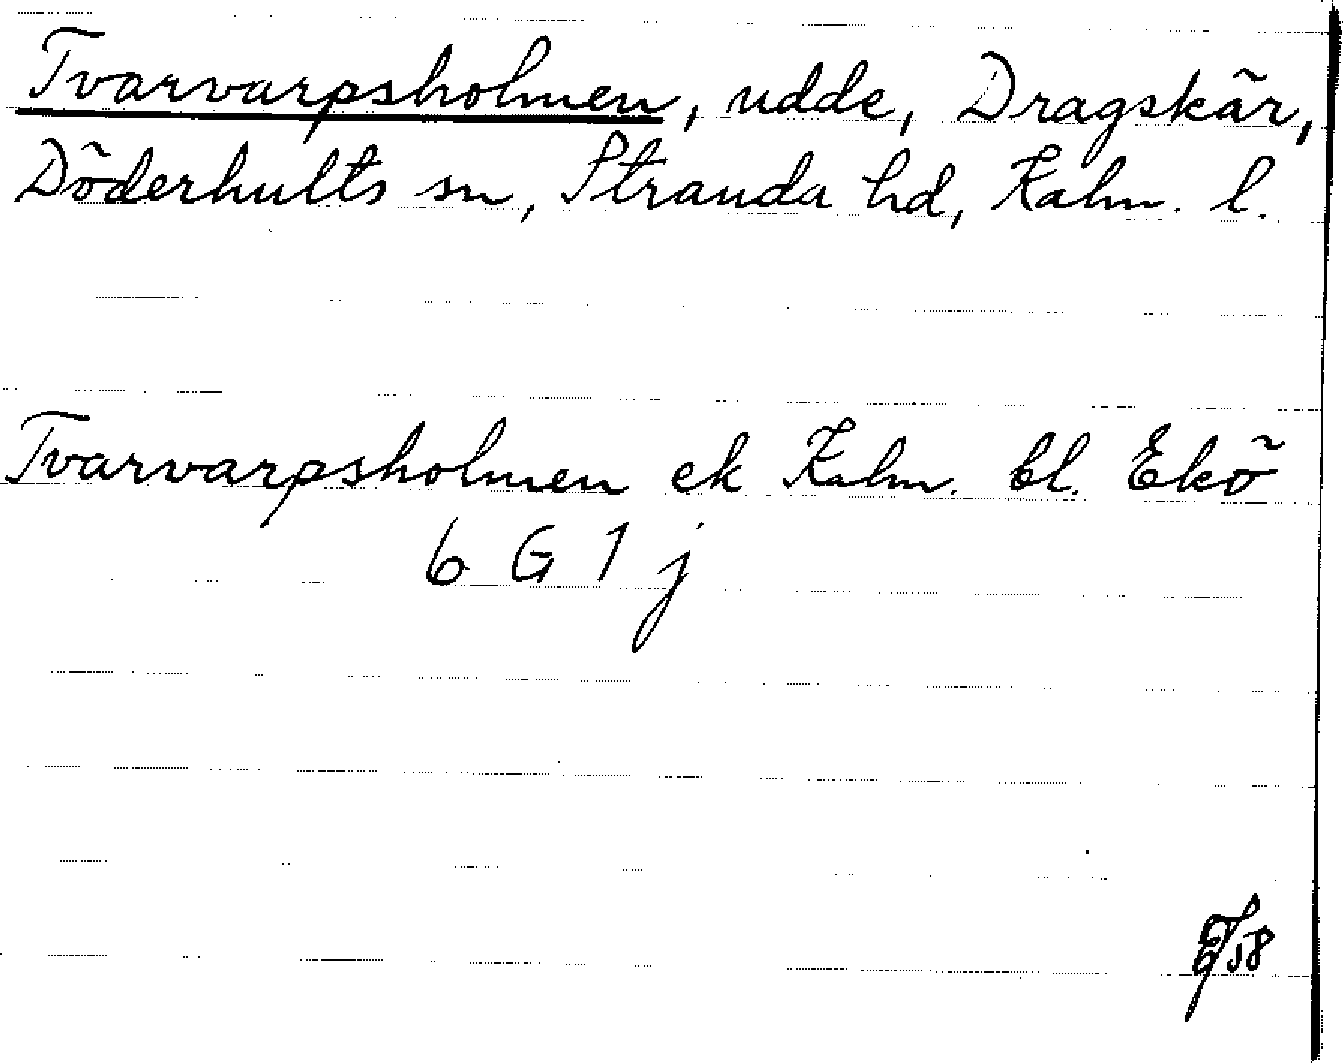 Tvarvarpsholmen, udde, Dragskär,
Döderhults sn, Stranda hd, Kalm. l.
Tvarvarpsholmen ek Kalm. bl. Ekö
6 G 1 j
58